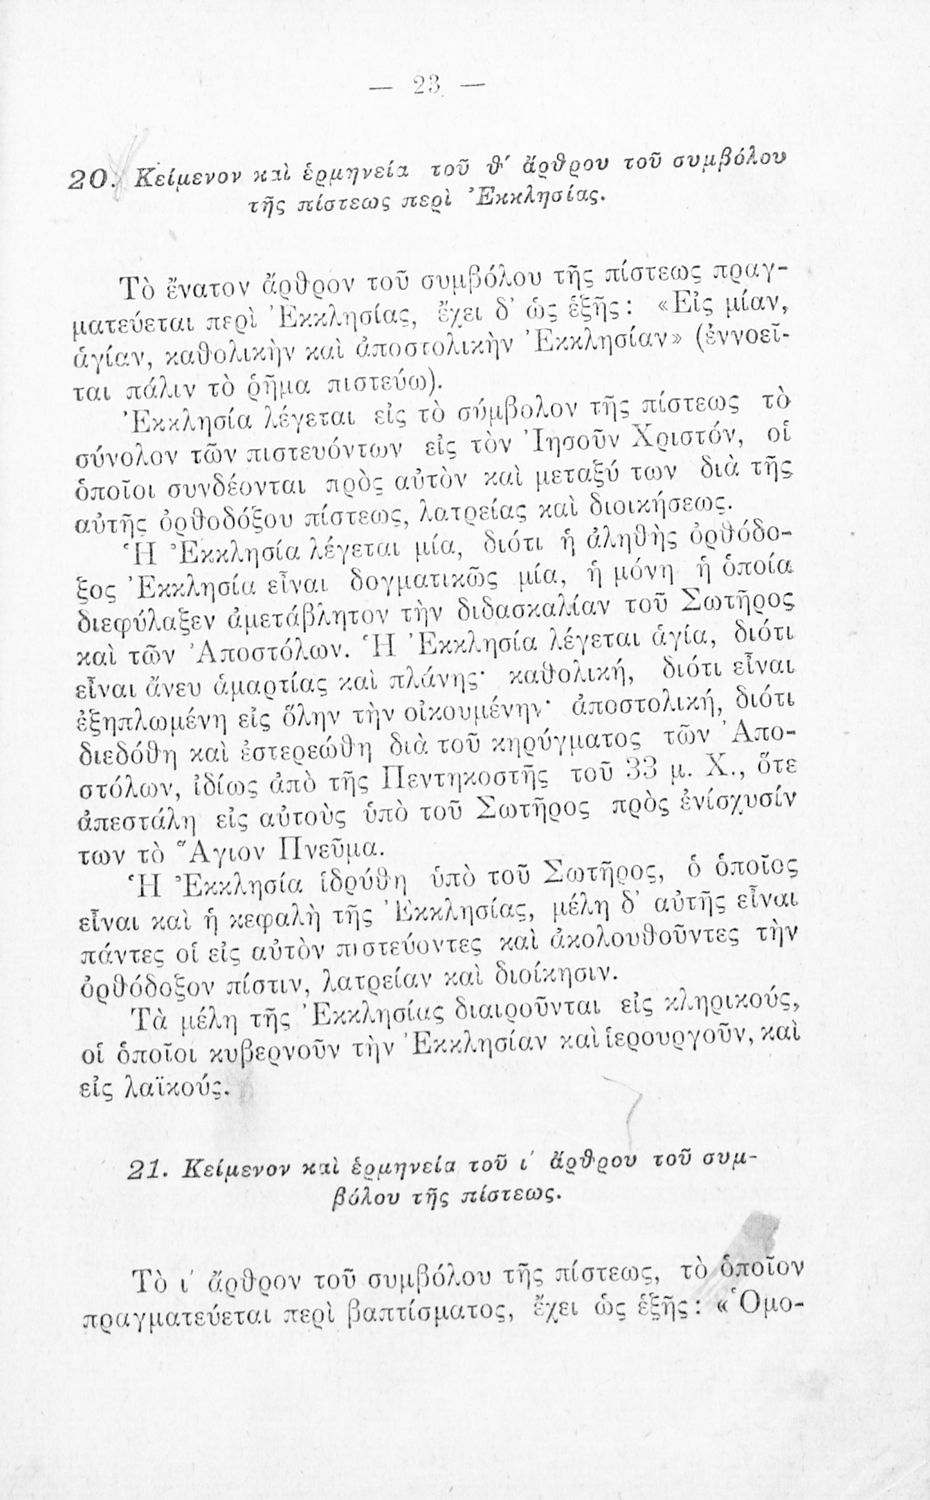 — 23 —
20. Κείμενον καὶ ἑρμηνεία τοῦ θ′ ἄρθρου τοῦ συμβόλου
τῆς πίστεως περὶ Ἐκκλησίας.
Τὸ ἔνατον ἄρθρον τοῦ συμβόλου τῆς πίστεως πραγ-
ματεύεται περὶ Ἐκκλησίας, ἔχει δ' ὡς ἑξῆς: «Εἰς μίαν,
ἁγίαν, καθολικὴν καὶ ἀποστολικὴν Ἐκκλησίαν» (ἐννοεῖ-
ται πάλιν τὸ ῥῆμα πιστεύω).
Ἐκκλησία λέγεται εἰς τὸ σύμβολον τῆς πίστεως τὸ
σύνολον τῶν πιστευόντων εἰς τὸν Ἰησοῦν Χριστόν, οἱ
ὁποῖοι συνδέονται πρὸς αὐτὸν καὶ μεταξύ των διὰ τῆς
αὐτῆς ὀρθοδόξου πίστεως, λατρείας καὶ διοικήσεως.
Ἡ Ἐκκλησία λέγεται μία, διότι ἡ ἀληθὴς ὀρθόδο-
ξος Ἐκκλησία εἶναι δογματικῶς μία, ἡ μόνη ἡ ὁποία
διεφύλαξεν ἀμετάβλητον τὴν διδασκαλίαν τοῦ Σωτῆρος
καὶ τῶν Ἀποστόλων. Ἡ Ἐκκλησία λέγεται ἁγία, διότι
εἶναι ἄνευ ἁμαρτίας καὶ πλάνης· καθολική, διότι εἶναι
ἐξηπλωμένη εἰς ὅλην τὴν οἰκουμένην· ἀποστολική, διότι
διεδόθη καὶ ἐστερεώθη διὰ τοῦ κηρύγματος τῶν Ἀπο-
στόλων, ἰδίως ἀπὸ τῆς Πεντηκοστῆς τοῦ 33 μ. Χ., ὅτε
ἀπεστάλη εἰς αὐτοὺς ὑπὸ τοῦ Σωτῆρος πρὸς ἐνίσχυσίν
των τὸ Ἅγιον Πνεῦμα.
Ἡ Ἐκκλησία ἱδρύθη ὑπὸ τοῦ Σωτῆρος, ὁ ὁποῖος
εἶναι καὶ ἡ κεφαλὴ τῆς Ἐκκλησίας, μέλη δ' αὐτῆς εἶναι
πάντες οἱ εἰς αὐτὸν πιστεύοντες καὶ ἀκολουθοῦντες τὴν
ὀρθόδοξον πίστιν, λατρείαν καὶ διοίκησιν.
Τὰ μέλη τῆς Ἐκκλησίας διαιροῦνται εἰς κληρικούς,
οἱ ὁποῖοι κυβερνοῦν τὴν Ἐκκλησίαν καὶ ἱερουργοῦν, καὶ
εἰς λαϊκούς.
21. Κείμενον καὶ ἑρμηνεία τοῦ ι′ ἄρθρου τοῦ συμ-
βόλου τῆς πίστεως.
Τὸ ι′ ἄρθρον τοῦ συμβόλου τῆς πίστεως, τὸ ὁποῖον
πραγματεύεται περὶ βαπτίσματος, ἔχει ὡς ἑξῆς: «Ὁμο-